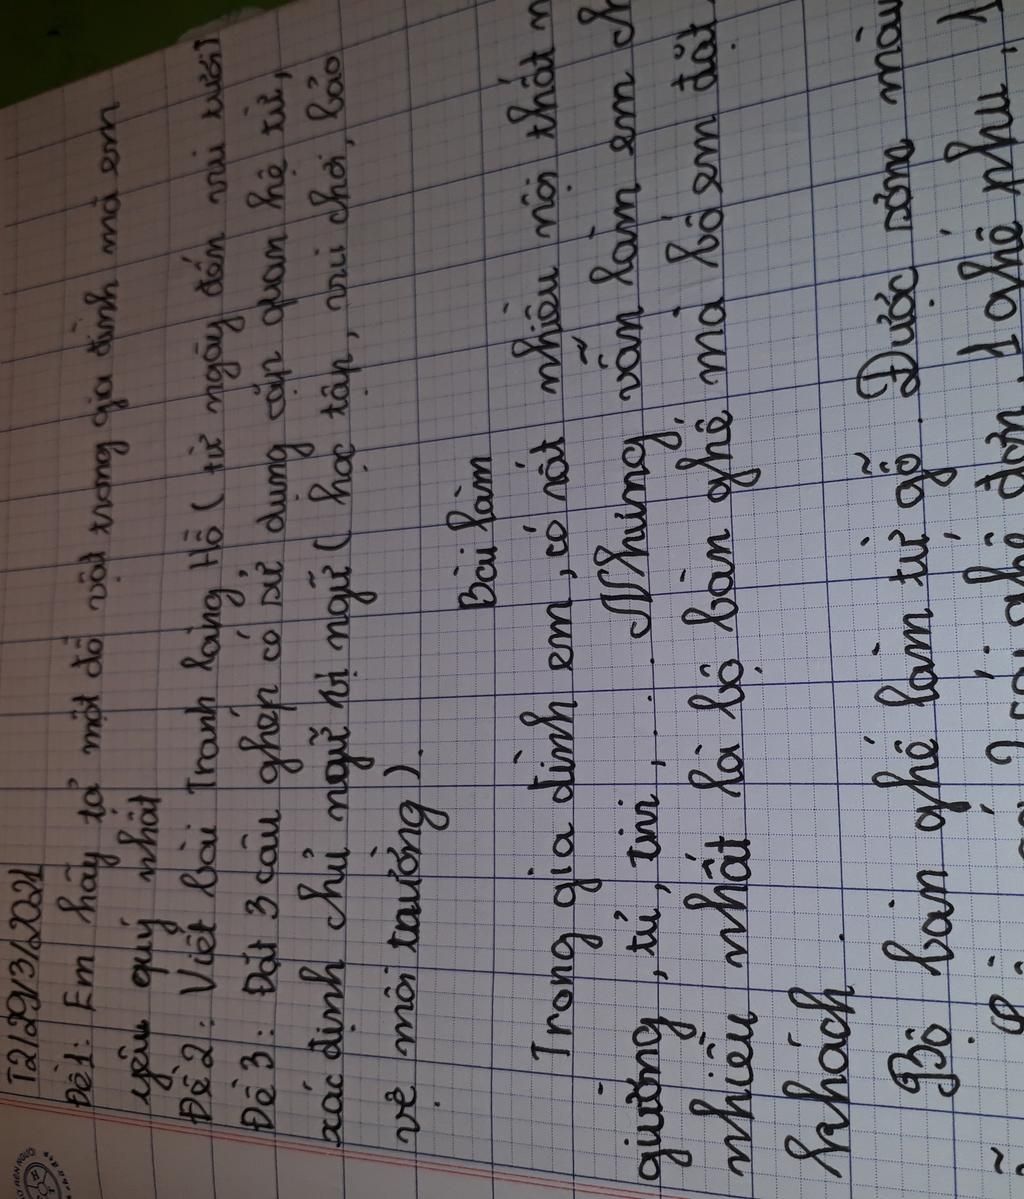 T2/29/3/2021
Đề 1: Em hãy tả một đồ vật trong gia đình mà em
yêu quý nhất
Đề 2: Viết bài Tranh làng Hồ ( từ ngày đến vui tươi)
Đề 3: Đặt 3 câu ghép có sử dụng cặp quan hệ từ,
xác định chủ ngữ vị ngữ ( học tập, vui chơi, bảo
vệ môi trường).
Bài làm
Trong gia đình em, có rất nhiều nội thất
giường, tủ, tivi, ... Nhưng vẫn làm em
nhiều nhất là bộ bàn ghế mà bố em đặt
khách.
Bộ bàn ghế làm từ gỗ. Được sơn màu
ghế đơn, 1 ghế phụ, 1